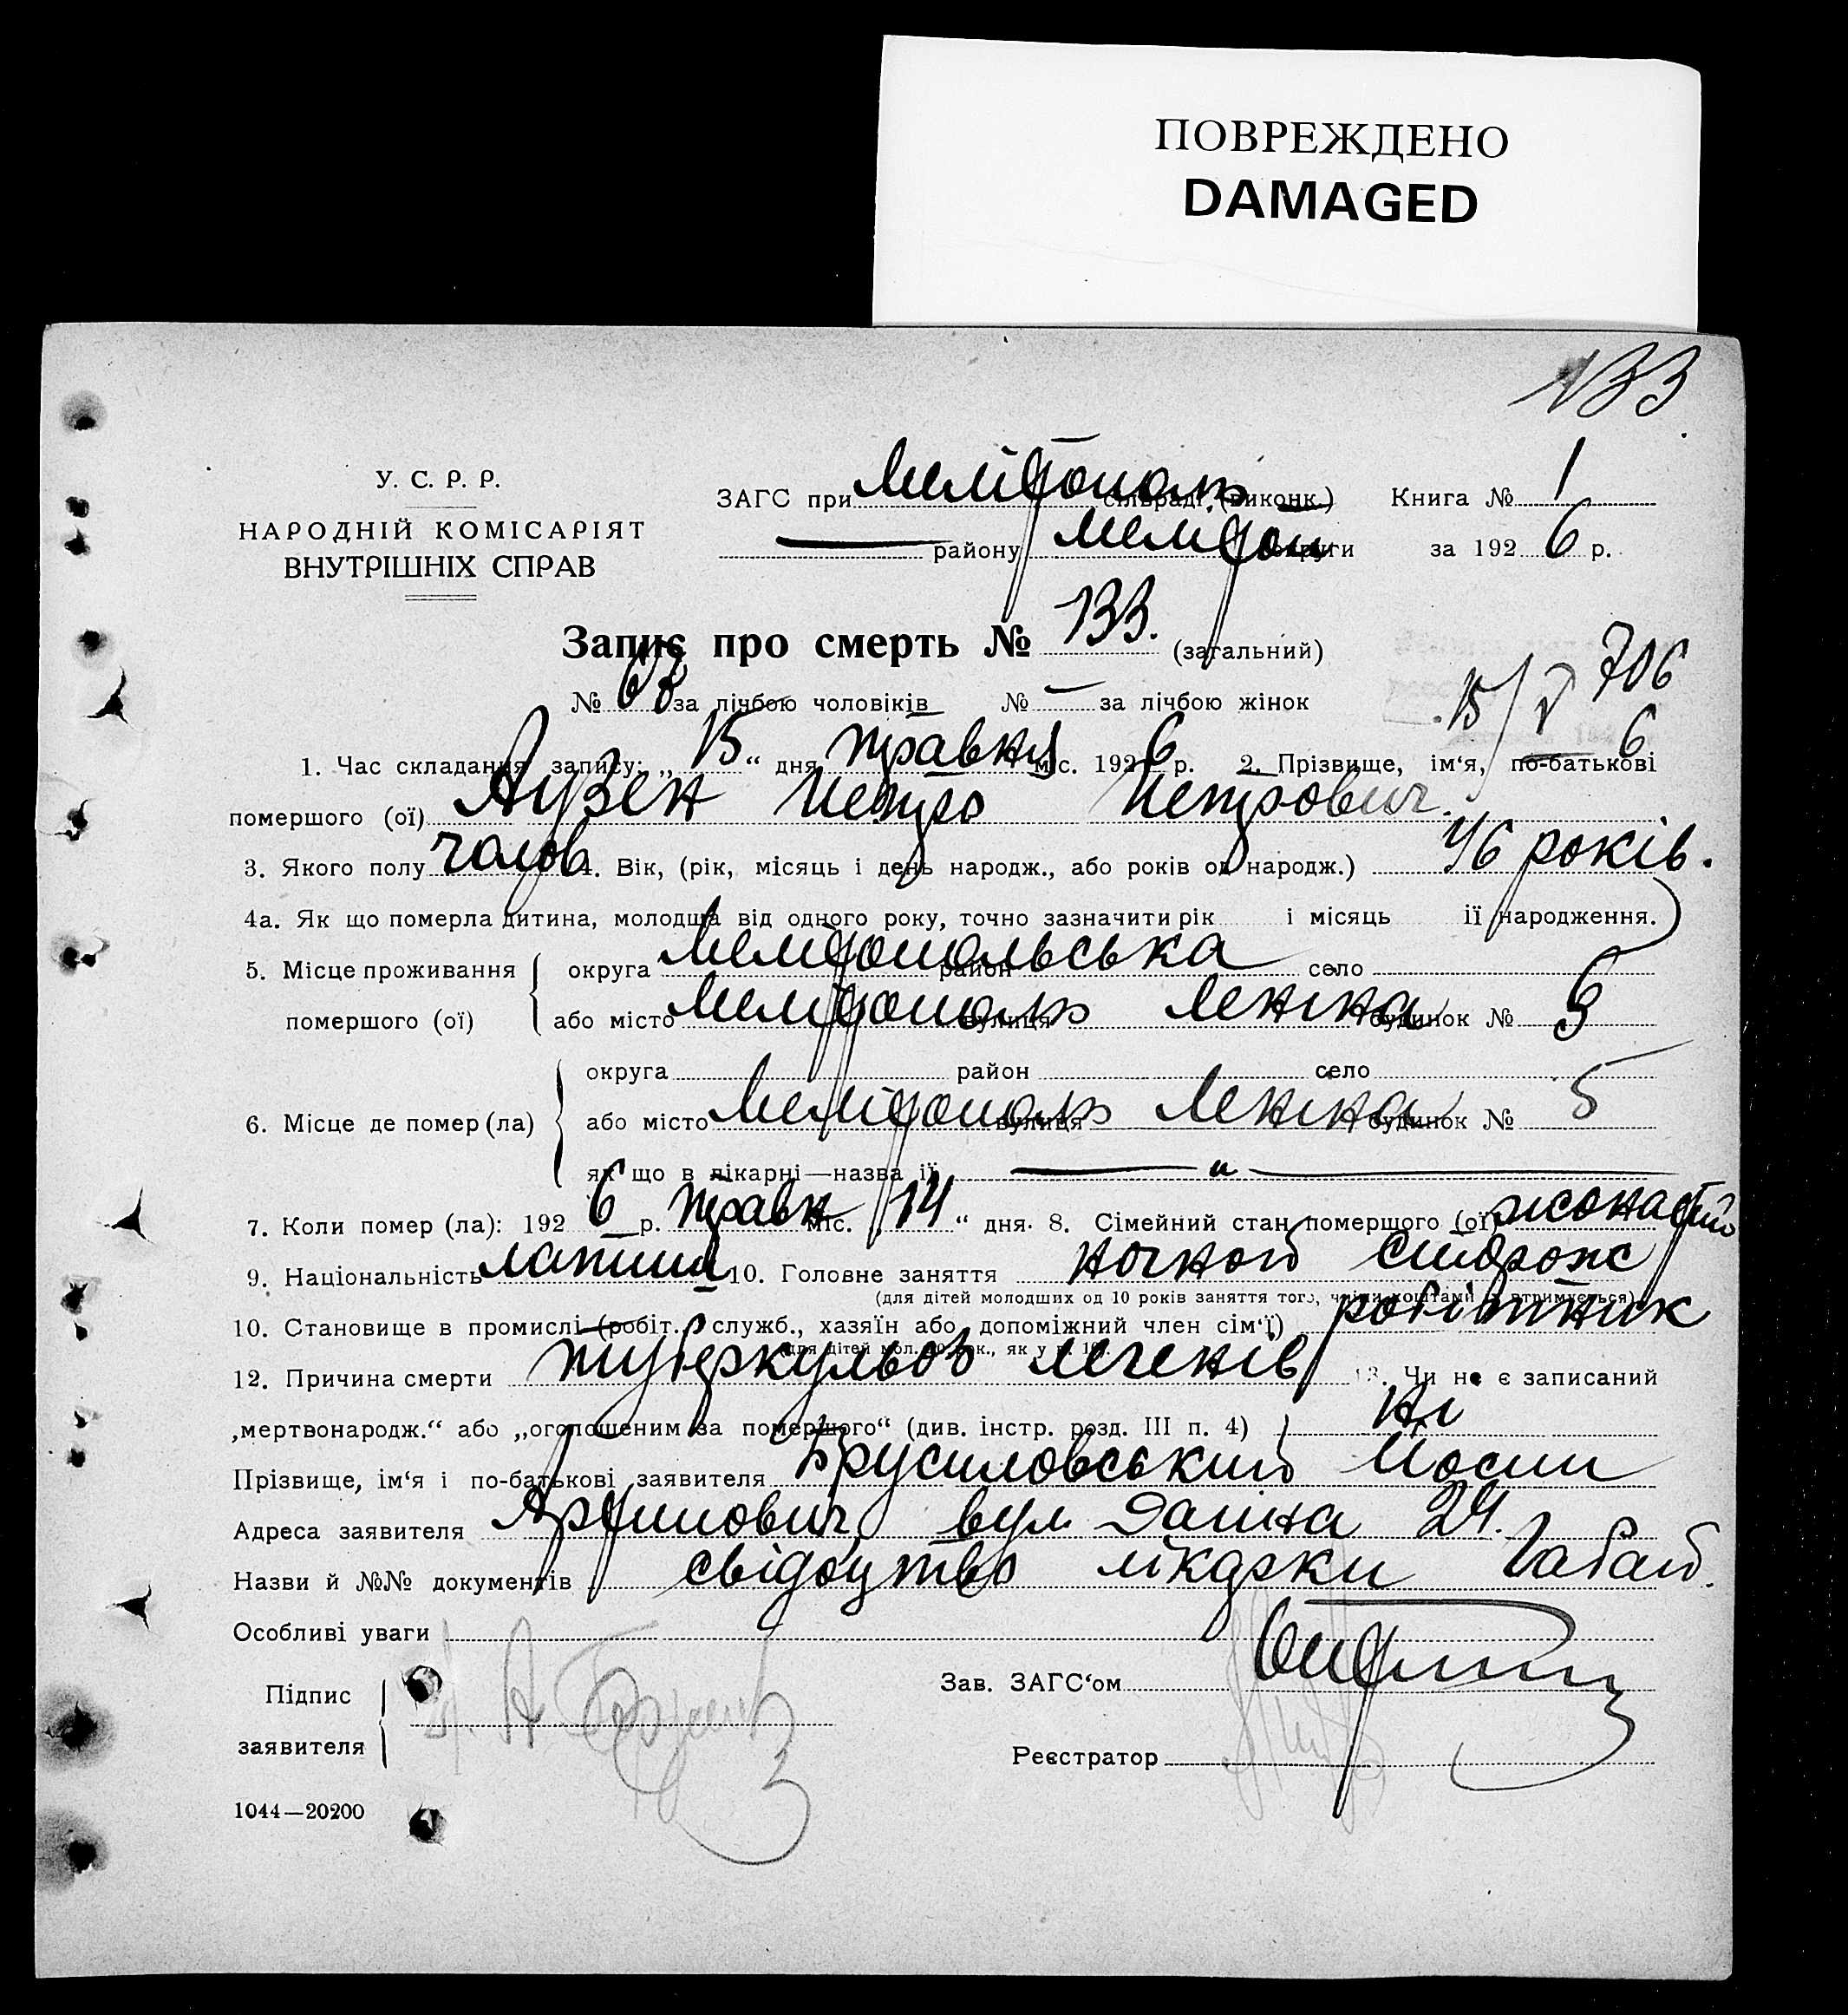 ПОВРЕЖДЕНО
DAMAGED
133
У. С. Р. Р.
НАРОДНІЙ КОМІСАРІЯТ
ВНУТРІШНІХ СПРАВ
ЗАГС при Мелітополь сільраді (виконк.) Книга № 1
— району Мелітоп округи за 1926 р.
Запис про смерть № 133. (загальний)
706
№ 68 за лічбою чоловіків № — за лічбою жінок 15/V 6
1. Час складання запису: „15“ дня травня міс. 1926 р. 2. Прізвище, ім‘я, по-батькові
помершого (ої) Аузен Петро Петрович
3. Якого полу чолов 4. Вік, (рік, місяць і день народж., або років од народж.) 46 років.
4а. Як що померла дитина, молодша від одного року, точно зазначити рік і місяць її народження.
5. Місце проживання помершого (ої) округа Мелітопольська район село
або місто Мелітополь вулиця Леніна будинок № 5
округа район село
6. Місце де помер (ла) або місто Мелітополь вулиця Леніна будинок № 5
як що в лікарні—назва її — " —
7. Коли помер (ла): 1926 р. травн міс. „14“ дня. 8. Сімейний стан помершого (ої) жонатий
9. Національність латиш 10. Головне заняття ночной сторож
(для дітей молодших од 10 років заняття того, чиїми коштами їх втримується)
10. Становище в промислі (робіт., служб., хазяїн або допоміжний член сім‘ї) робітник
(для дітей мол. 10 рок., як у п. 10).
12. Причина смерти туберкульоз легенів 13. Чи не є записаний
„мертвонародж.“ або „оголошеним за помершого“ (див. інстр. розд. III п. 4) Ні
Прізвище, ім‘я і по-батькові заявителя Брусиловський Йосип
Адреса заявителя вул 24.
Назви й №№ документів свідоцтво лікарки Габай.
Особливі уваги
Підпис
заявителя
Зав. ЗАГС‘ом
Реєстратор
1044—20200